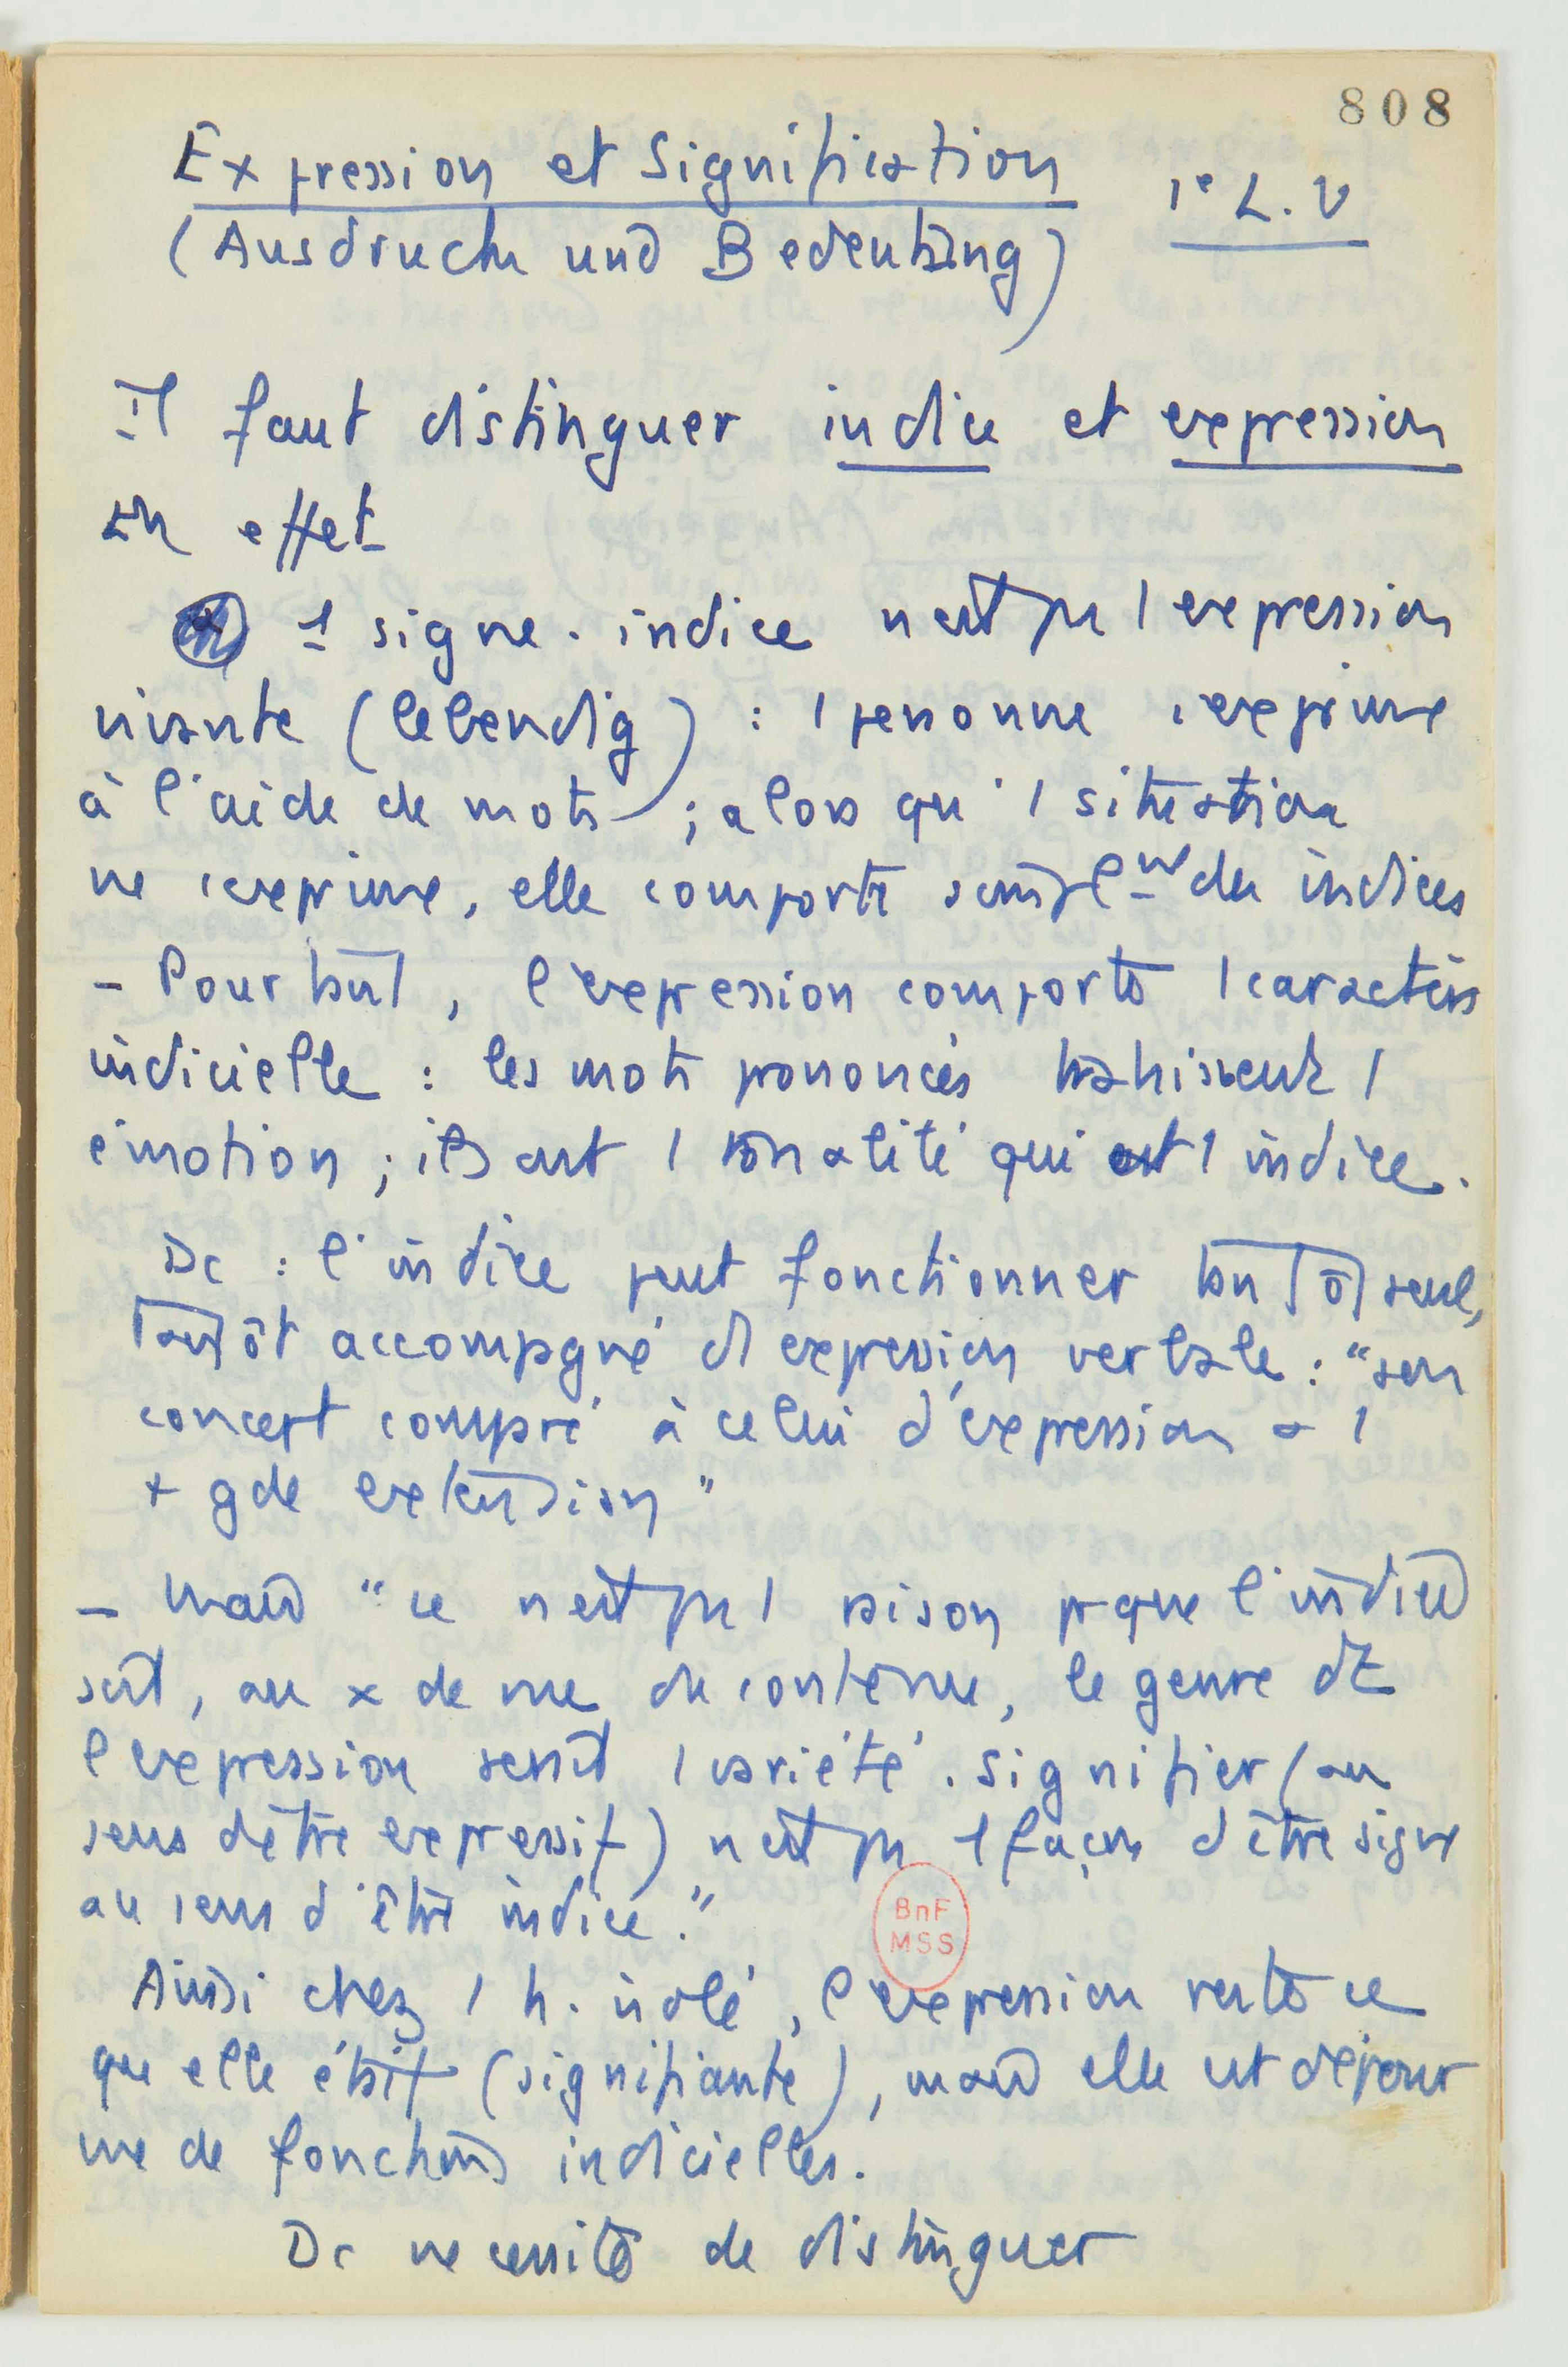 808
Expression et Signification 1e L. V
(Ausdruch und Bedeutung)
il faut distinguer indice et expression
En effet
1 signe-indice n'est pas 1 expression
vivante (lebendig) : 1 personne s'exprime
à l'aide de mots ; alors qu'1 situation
ne s'exprime, elle comporte simplnt des indices
- Pourtant, l'expression comporte 1 caractère
indicielle : les mots prononcés trahissent 1
émotion ; ils ont 1 tonalité qui est 1 indice.
Dc : l'indice peut fonctionner tantôt seul,
tantôt accompagné d'1 expression verbale : "son
concert compré à celui d'expression a 1
+ gde extension"
- mais "ce n'est pas 1 raison pr que l'indice
soit, au x de vue du contenu, le genre dt
l'expression serait 1 variété. Signifier (au
sens d'être expressif) n'est pas 1 façon d'être signe
au sens d'être indice."
BnF
MSS
Ainsi chez 1 h. isolé, l'expression reste ce
que elle était (signifiante), mais elle est dépour
vue de fonctions indicielles.
Dc necessité de distinguer